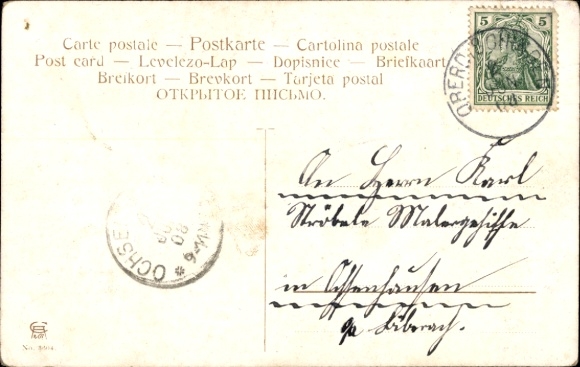 Carte postale — Postkarte — Cartolina postale
Post card — Levelezo-Lap — Dopisnice — Briefkaart
Breifkort — Brevkort — Tarjeta postal
ОТКРЫТОЕ ПИСЬМО.
5 5
DEUTSCHES REICH
OBERD
An Herrn Karl
Ströbele Malergehilfe
in Ochsenhausen
Biberach.
OCHSE